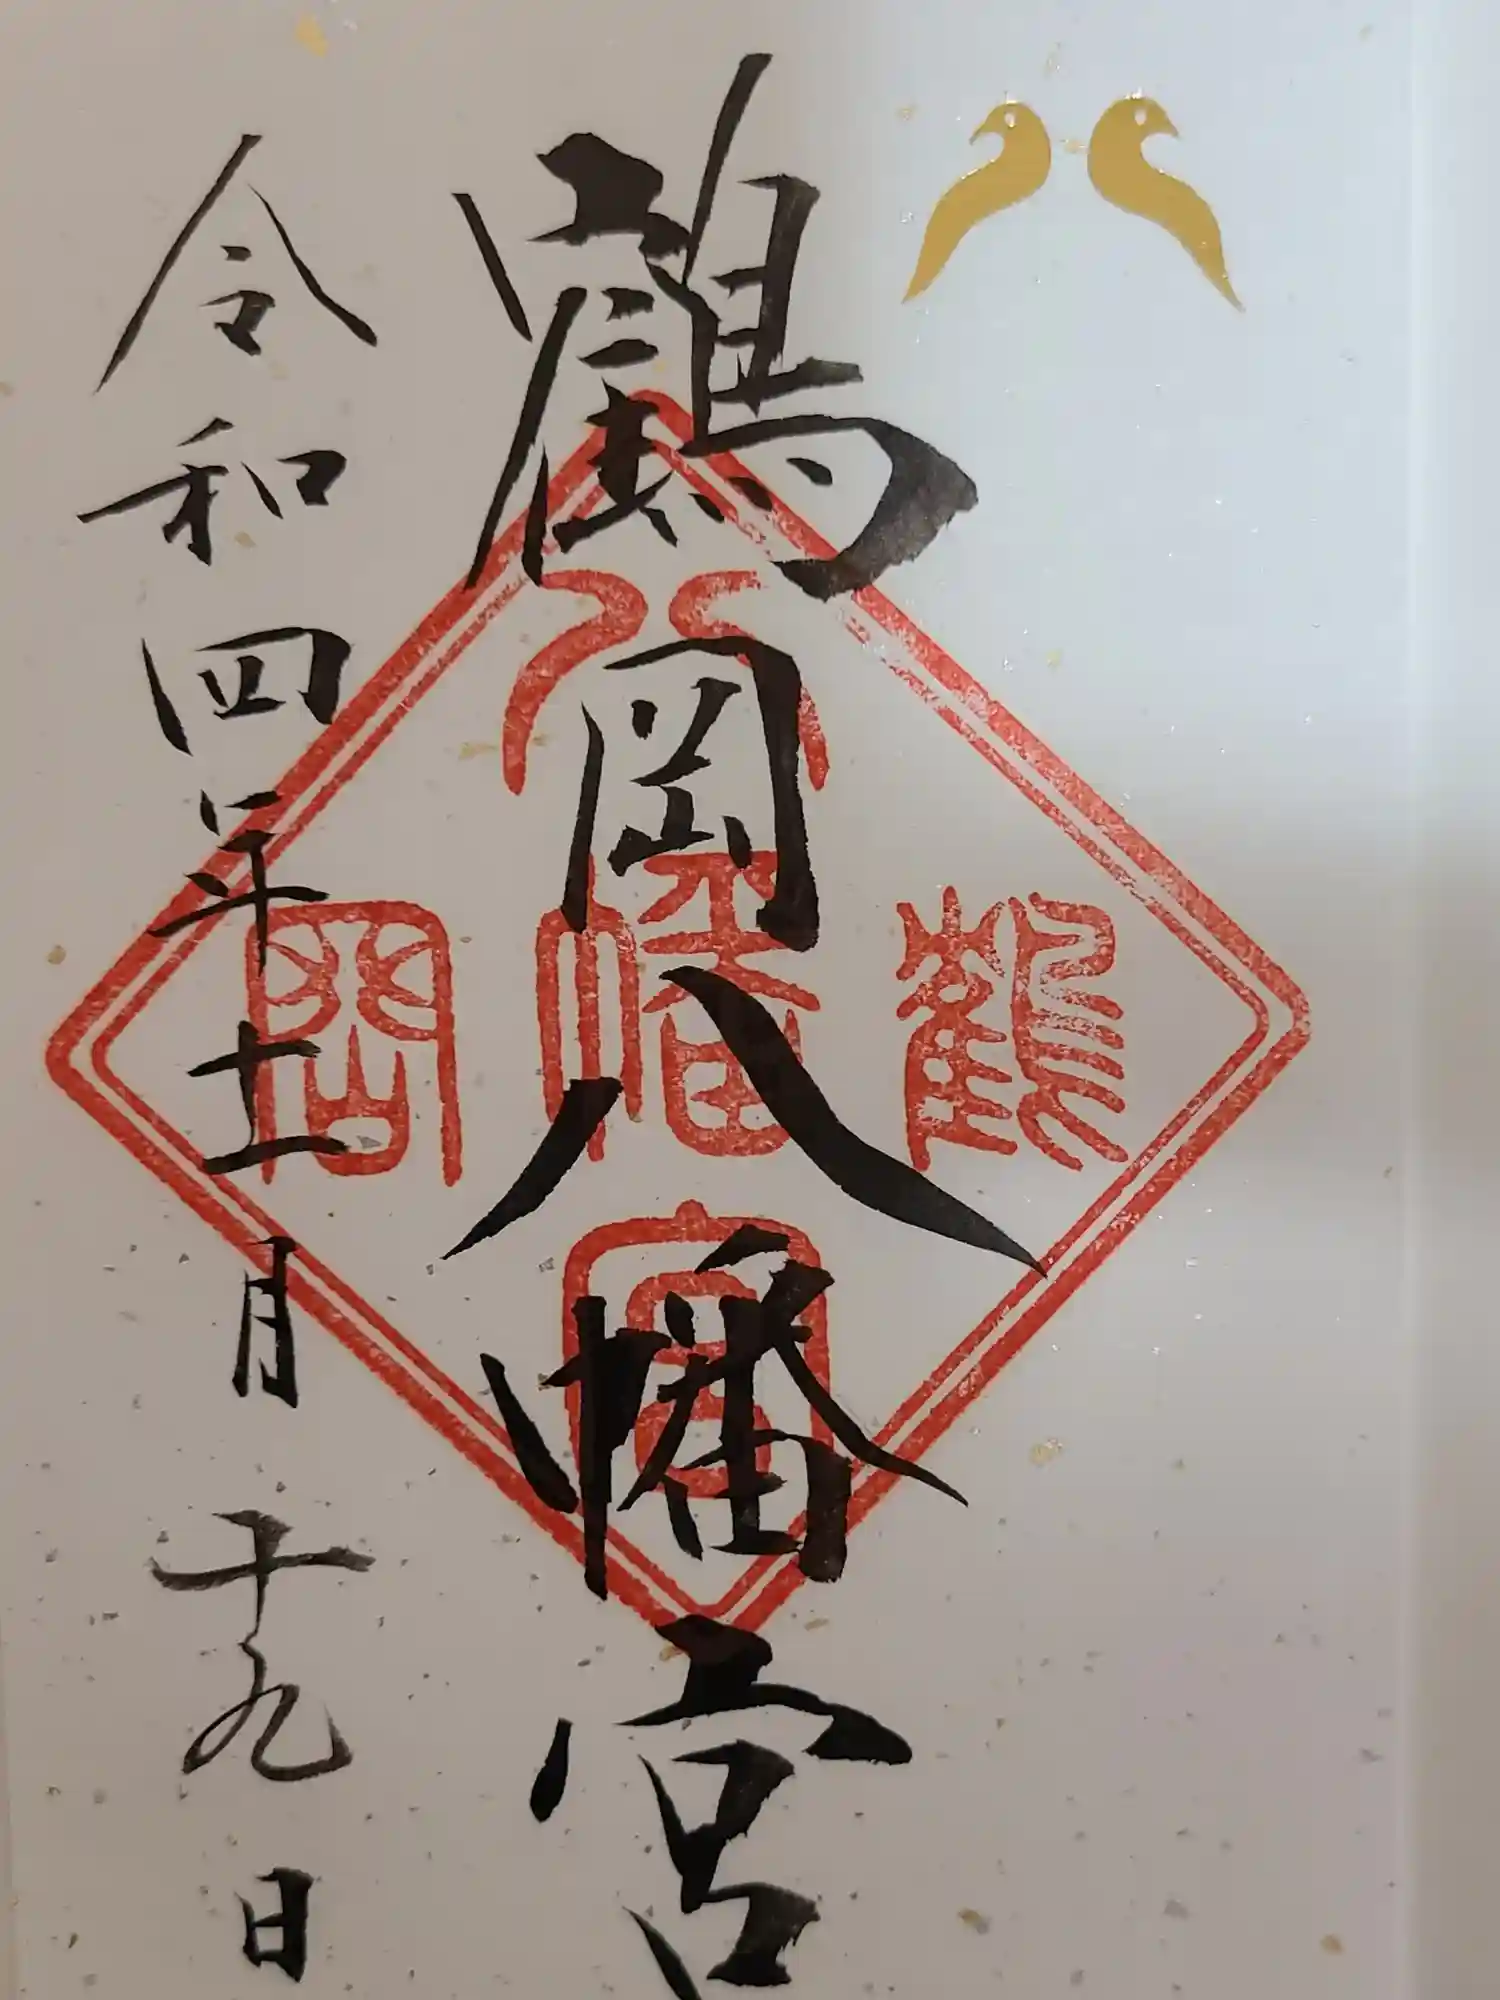 鶴岡八幡宮
八幡宮
鶴
岡
令和四年十一月十九日